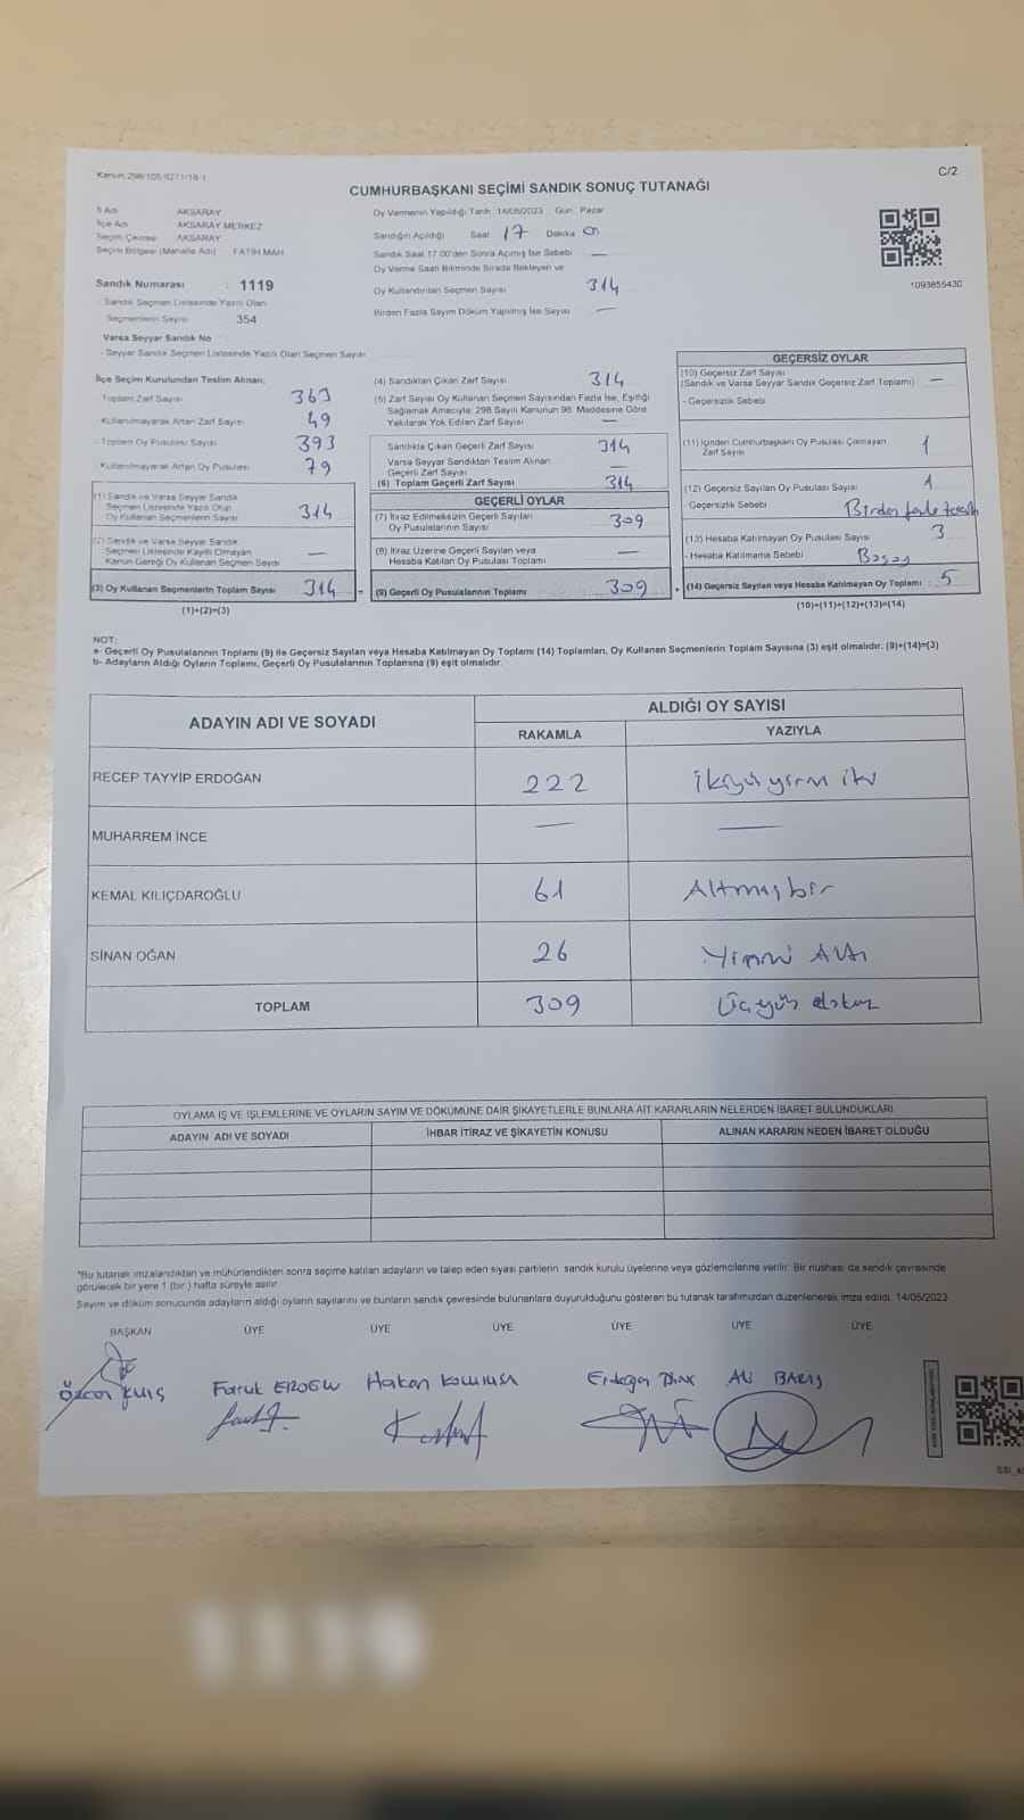 Kanun:298/105/0271/18-1
C/2
CUMHURBAŞKANI SEÇİMİ SANDIK SONUÇ TUTANAĞI
İl Adı AKSARAY
İlçe Adı AKSARAY MERKEZ
Seçim Çevresi AKSARAY
Seçim Bölgesi (Mahalle Adı) FATİH MAH
Sandık Numarası : 1119
- Sandık Seçmen Listesinde Yazılı Olan
Seçmenlerin Sayısı 354
Varsa Seyyar Sandık No
- Seyyar Sandık Seçmen Listesinde Yazılı Olan Seçmen Sayısı
Oy Vermenin Yapıldığı Tarih: 14/05/2023 Gün: Pazar
Sandığın Açıldığı Saat 17 Dakika
Sandık Saat 17.00'den Sonra Açılmış İse Sebebi —
Oy Verme Saati Bitiminde Sırada Bekleyen ve
Oy Kullandırılan Seçmen Sayısı 314
Birden Fazla Sayım Döküm Yapılmış İse Sayısı —
1093855430
İlçe Seçim Kurulundan Teslim Alınan;
Toplam Zarf Sayısı 363
Kullanılmayarak Artan Zarf Sayısı 49
- Toplam Oy Pusulası Sayısı 393
Kullanılmayarak Artan Oy Pusulası 79
(1) Sandık ve Varsa Seyyar Sandık
Seçmen Listesinde Yazılı Olup
Oy Kullanan Seçmenlerin Sayısı 314
(2) Sandık ve Varsa Seyyar Sandık
Seçmen Listesinde Kayıtlı Olmayan
Kanun Gereği Oy Kullanan Seçmen Sayısı —
(3) Oy Kullanan Seçmenlerin Toplam Sayısı 314
(1)+(2)=(3)
(4) Sandıktan Çıkan Zarf Sayısı 314
(5) Zarf Sayısı Oy Kullanan Seçmen Sayısından Fazla İse, Eşitliği
Sağlamak Amacıyla; 298 Sayılı Kanunun 98. Maddesine Göre
Yakılarak Yok Edilen Zarf Sayısı —
Sandıkta Çıkan Geçerli Zarf Sayısı 314
Varsa Seyyar Sandıktan Teslim Alınan
Geçerli Zarf Sayısı —
(6) Toplam Geçerli Zarf Sayısı 314
GEÇERLİ OYLAR
(7) İtiraz Edilmeksizin Geçerli Sayılan
Oy Pusulalarının Sayısı 309
(8) İtiraz Üzerine Geçerli Sayılan veya
Hesaba Katılan Oy Pusulası Toplamı —
= (9) Geçerli Oy Pusulalarının Toplamı 309
GEÇERSİZ OYLAR
(10) Geçersiz Zarf Sayısı
(Sandık ve Varsa Seyyar Sandık Geçersiz Zarf Toplamı) —
- Geçersizlik Sebebi
(11) İçinden Cumhurbaşkanı Oy Pusulası Çıkmayan
Zarf Sayısı 1
(12) Geçersiz Sayılan Oy Pusulası Sayısı 1
Geçersizlik Sebebi Birden fazla
(13) Hesaba Katılmayan Oy Pusulası Sayısı 3
- Hesaba Katılmama Sebebi
+ (14) Geçersiz Sayılan veya Hesaba Katılmayan Oy Toplamı : 5
(10)+(11)+(12)+(13)=(14)
NOT:
a- Geçerli Oy Pusulalarının Toplamı (9) ile Geçersiz Sayılan veya Hesaba Katılmayan Oy Toplamı (14) Toplamları, Oy Kullanan Seçmenlerin Toplam Sayısına (3) eşit olmalıdır. (9)+(14)=(3)
b- Adayların Aldığı Oyların Toplamı, Geçerli Oy Pusulalarının Toplamına (9) eşit olmalıdır.
ADAYIN ADI VE SOYADI
ALDIĞI OY SAYISI
RAKAMLA YAZIYLA
RECEP TAYYİP ERDOĞAN 222 ikiyüz yirmi iki
MUHARREM İNCE — —
KEMAL KILIÇDAROĞLU 61 Altmış bir
SİNAN OĞAN 26 Yirmi Altı
TOPLAM 309 Üçyüz dokuz
OYLAMA İŞ VE İŞLEMLERİNE VE OYLARIN SAYIM VE DÖKÜMÜNE DAİR ŞİKAYETLERLE BUNLARA AİT KARARLARIN NELERDEN İBARET BULUNDUKLARI
ADAYIN ADI VE SOYADI İHBAR İTİRAZ VE ŞİKAYETİN KONUSU ALINAN KARARIN NEDEN İBARET OLDUĞU
*Bu tutanak imzalandıktan ve mühürlendikten sonra seçime katılan adayların ve talep eden siyasi partilerin sandık kurulu üyelerine veya gözlemcilerine verilir. Bir nüshası da sandık çevresinde
görülecek bir yere 1 (bir) hafta süreyle asılır.
Sayım ve döküm sonucunda adayların aldığı oyların sayılarını ve bunların sandık çevresinde bulunanlara duyurulduğunu gösteren bu tutanak tarafımızdan düzenlenerek imza edildi. 14/05/2023
BAŞKAN ÜYE ÜYE ÜYE ÜYE ÜYE ÜYE
Özcan Faruk Hakan Ali BARIŞ
1119